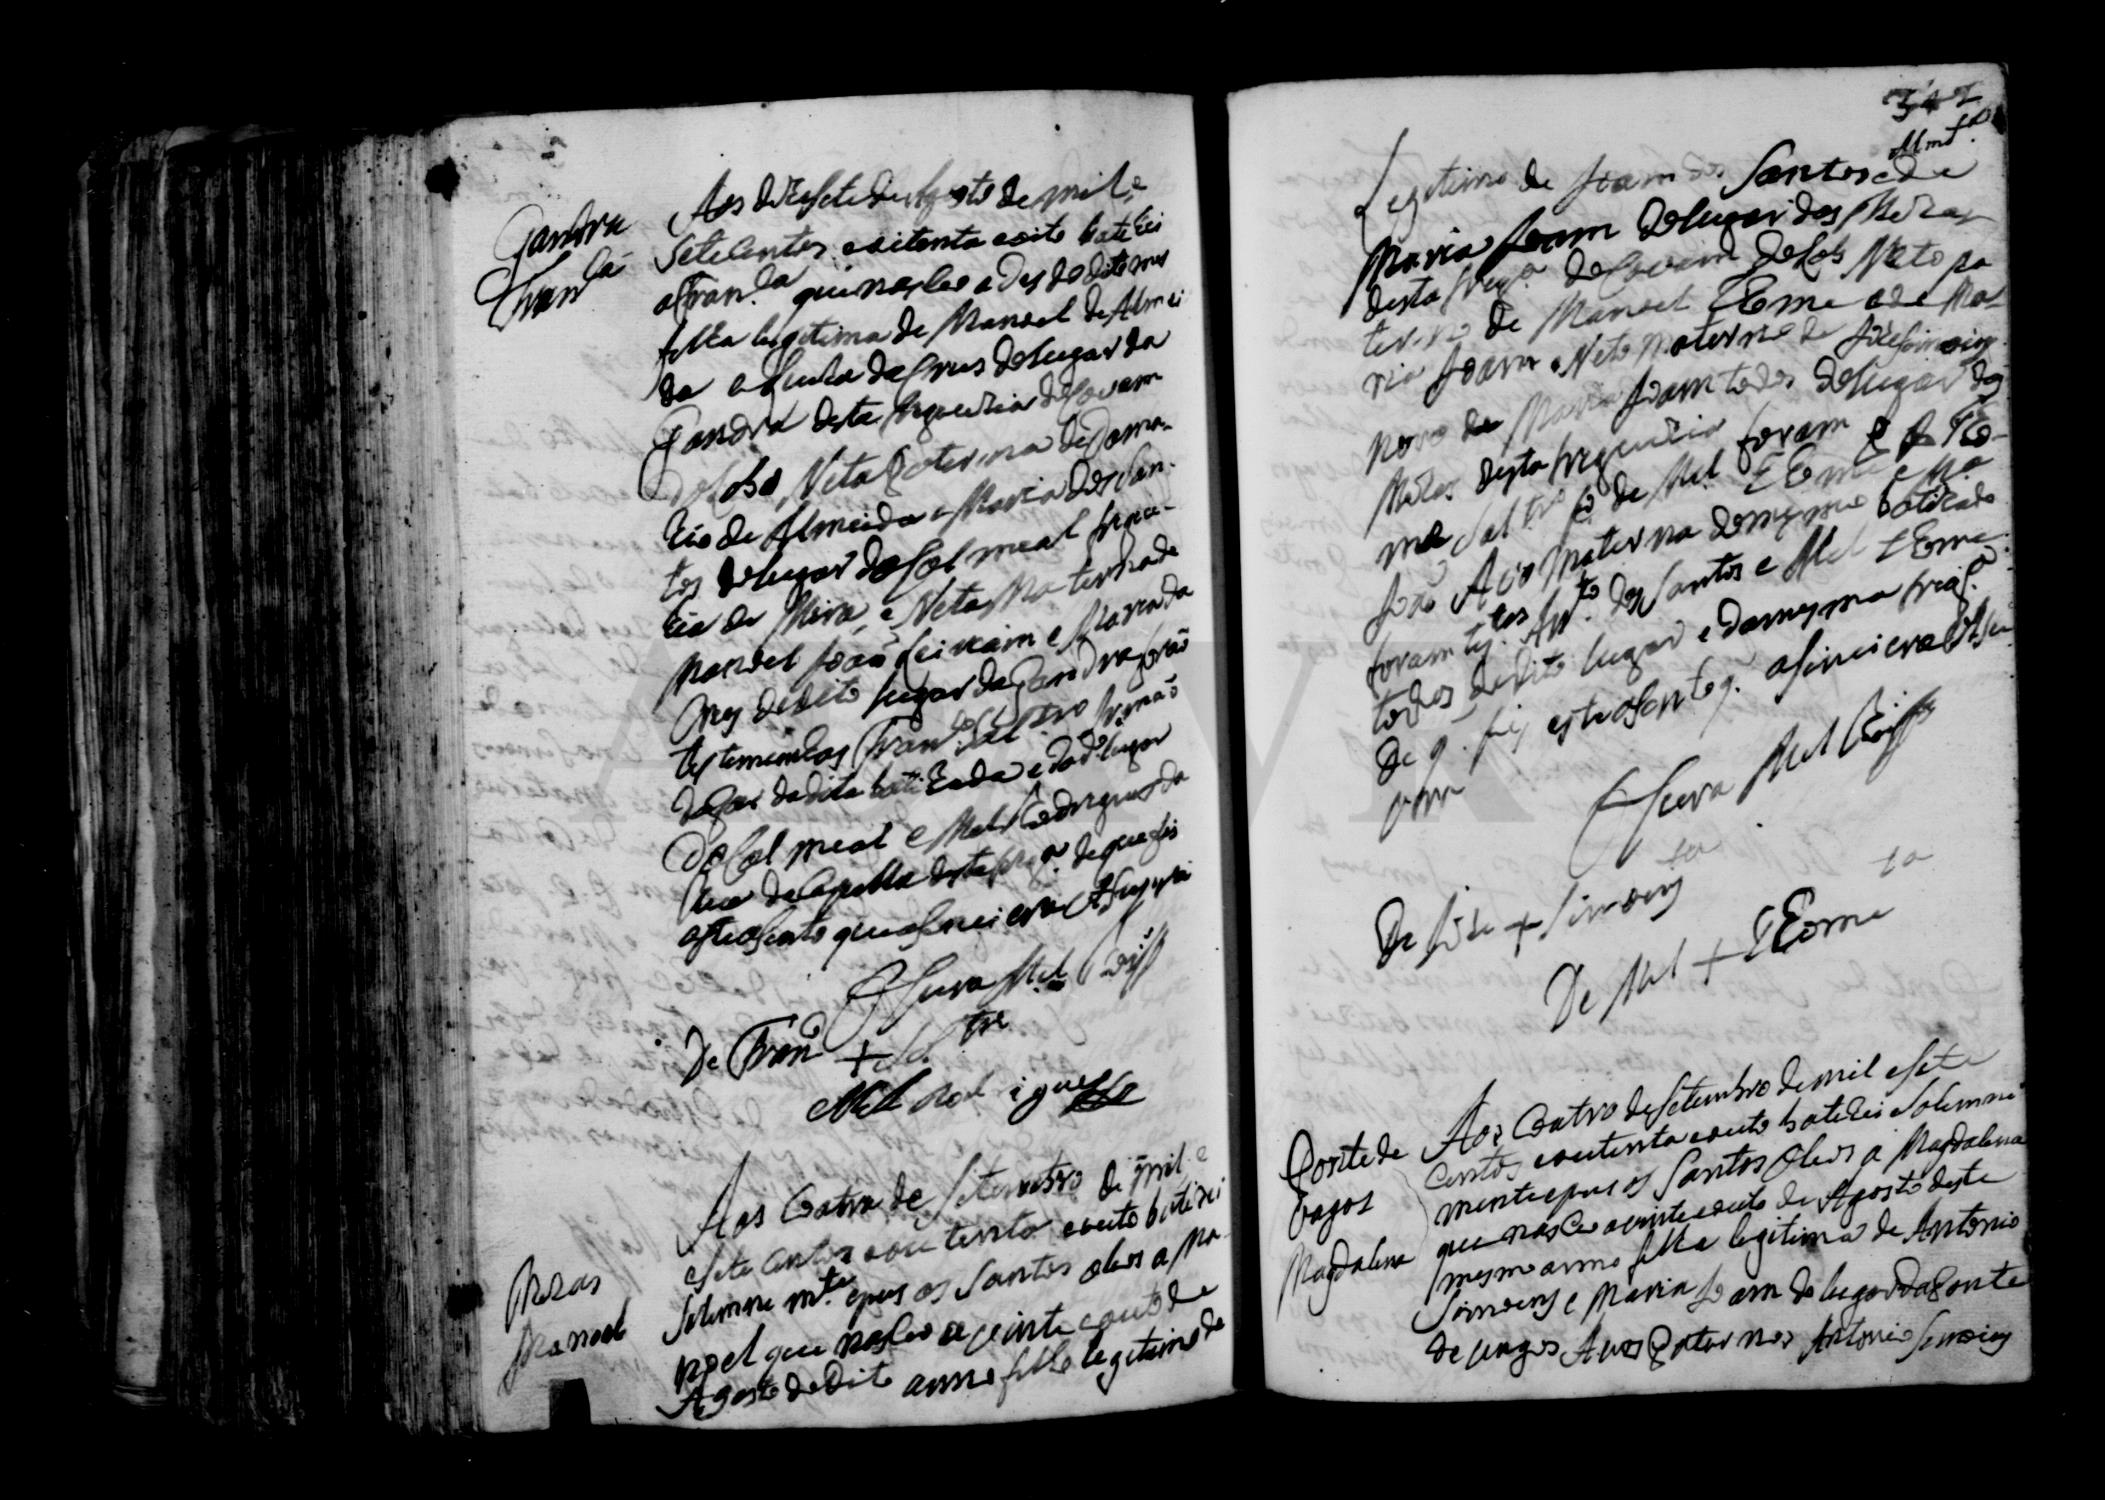 Gandra
Fran.ca
Aos dezesete de Agosto de mil e
setecentos e oitenta e oito batizei
a Fran.ca que nasceo a des do dito mes
filha legitima de Manoel de Almei
da e Luiza da Crus do lugar da
Gandra desta freguezia de Covam
do Lobo, Neta Paterna de Joma-
zio de Almeida e Maria dos San-
tos do lugar do Colmeal fregue-
zia de Mira, e Neta Materna de
Manoel João e Maria da
Crus do dito lugar da Gandra forão
testemunhas Fran.co Irmão
do Pai da dita batizada e do d.o lugar
do Colmeal e Mel Rodrigues da
da Capella desta freg.a de que fis
este asento que asinei era ut supra
O Cura Mel
De Fran.co +
Mel Rodrigues
Mezas
Manoel
Aos Coatro de Setembro de mil e
e sete centos e outenta e outo batizei
solemne m.te e pus os Santos oleos a Ma-
noel que nasceo a vinte e outo de
Agosto do dito anno filho legitimo de
342
Legitimo de Joam dos Santos e de
Maria Joam do lugar das Mezas
desta freg.a de Covam do Lob Neto pa
terno de Manoel Thome e de Ma-
ria Joam e Neto materno de Joze Simoens
Maria Joam todos do lugar das
Mezas desta freguezia foram P. P. Tho-
me Solt.ro f.o de Mel Thome e Ma
João Avo Materna do mesmo batizado
foram tes.tas Ant.o dos Santos e Mel Thome
todos do dito lugar e da mesma freg.a
De q. fis este asento q. asinei era ut su
pra
O Cura Mel
De Joze + Simoens
De Mel + Thome
Ponte de
Vagos
Magdalena
Aos Coatro de Setembro de mil e sete
centos e outenta e outo batizei solemne
mente e pus os Santos Oleos a Magdalena
que nasceo a vinte e outo de Agosto deste
mesmo anno filha legitima de Antonio
Simoens e Maria Joam do lugar da Ponte
de Vagos Avos Paternos Antonio Simoens